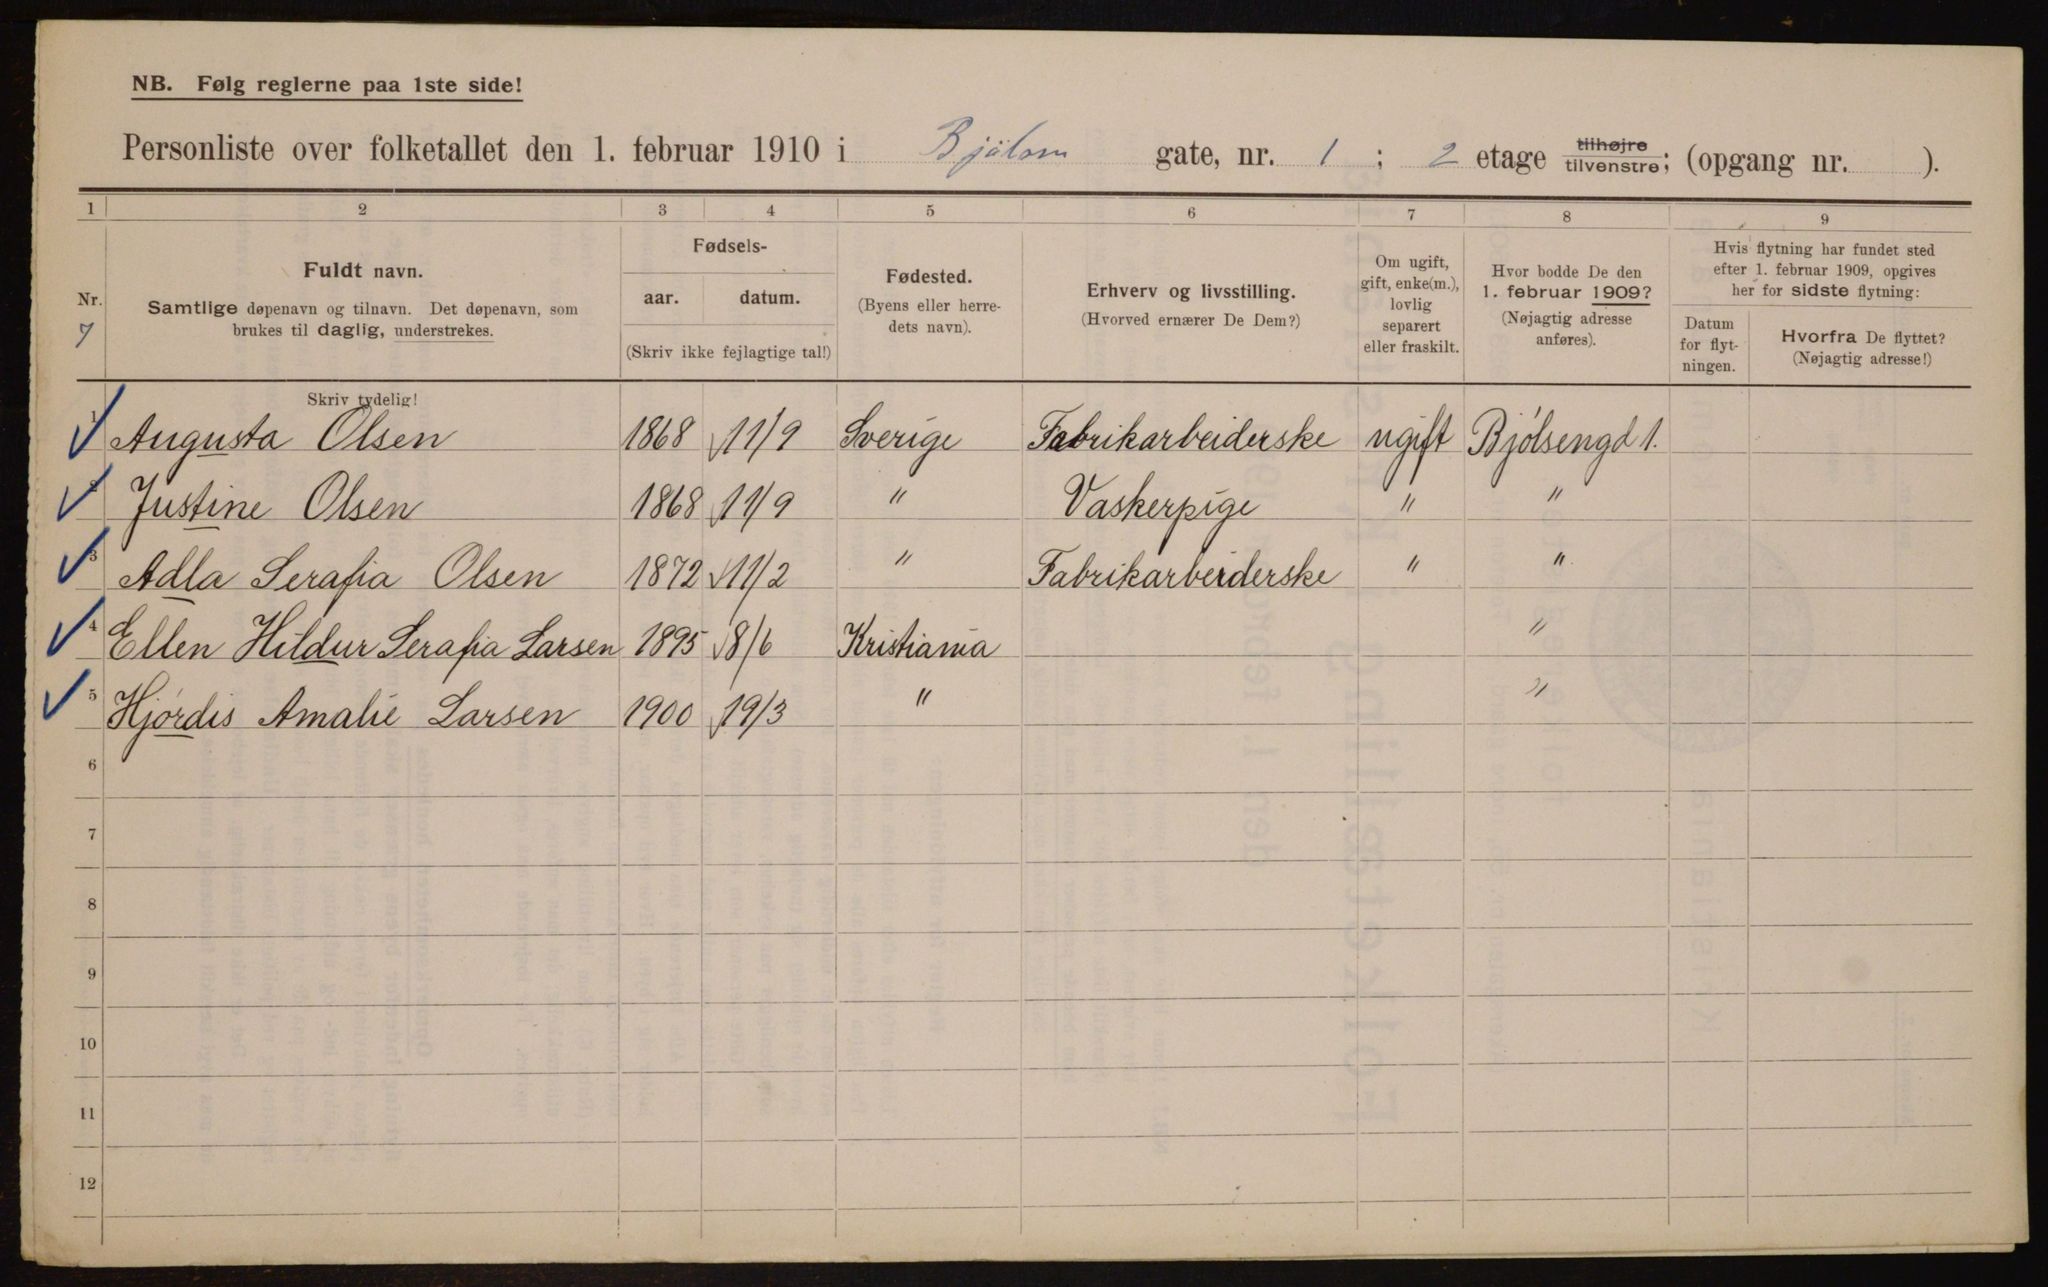 NB. Følg reglerne paa 1ste side!
Personliste over folketallet den 1. februar 1910 i Bjölsen gate, nr. 1 ; 2 etage tilhøjre tilvenstre; (opgang nr. ).
1 2 3 4 5 6 7 8 9
Nr. 7
Fuldt navn.
Samtlige døpenavn og tilnavn. Det døpenavn, som
brukes til daglig, understrekes.
Fødsels-
aar. datum.
(Skriv ikke fejlagtige tal!)
Fødested.
(Byens eller herre-
dets navn).
Erhverv og livsstilling.
(Hvorved ernærer De Dem?)
Om ugift,
gift, enke(m.),
lovlig
separert
eller fraskilt.
Hvor bodde De den
1. februar 1909?
(Nøjagtig adresse
anføres).
Hvis flytning har fundet sted
efter 1. februar 1909, opgives
her for sidste flytning:
Datum
for flyt-
ningen.
Hvorfra De flyttet?
(Nøjagtig adresse!)
Skriv tydelig!
1 Augusta Olsen 1868 11/9 Sverige Fabrikarbeiderske ugift Bjólsengd 1.
2 Justine Olsen 1868 11/9 " Vaskerpige " "
3 Adla Serafia Olsen 1872 11/2 " Fabrikarbeiderske " "
4 Ellen Hildur Serafia Larsen 1895 8/6 Kristiania "
5 Hjórdis Amalie Larsen 1900 19/3 " "
6
7
8
9
10
11
12